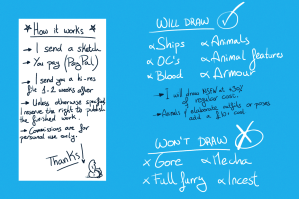 How it works
→ I send a sketch
→ You pay (PayPal)
→ I send you a hi-res
file 1-2 weeks after
→ Unless otherwise specified
I reserve the right to publish
the finished work.
→ Commissions are for
personal use only.
Thanks!
WILL DRAW ✓
∝ Ships
∝ OC's
∝ Blood
∝ Animals
∝ Animal features
∝ Armour
→ I will draw NSFW at
of regular cost.
elaborate outfits or poses
add a £10+ cost
WON'T DRAW X
∝ Gore
∝ Mecha
∝ Full furry
∝ Incest